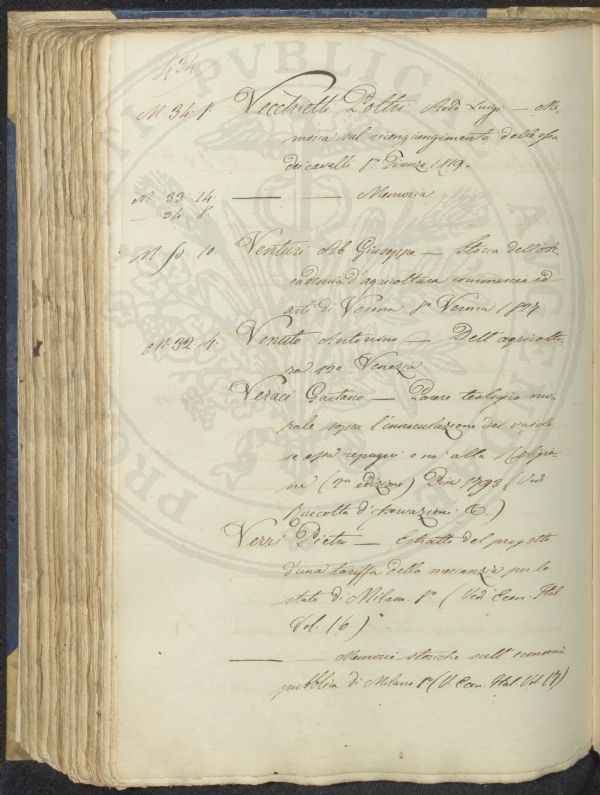 434
M. 34. 8 Vecchietti Poltri Avv.o Luigi — Me
moria sul ricongiungimento delle ossa
dei cavalli 8.o Firenze 1819.
M. 33 14. — — Memoria
34 8.
M. 50. 10 Venturi Ab. Giuseppe — Storia dell'Ac
cademia d'agricoltura commercio ed
arti di Verona 8.o Verona 1827
M. 32 4. Venuto Antonino — Dell'agricoltu
ra 12.o Venezia
Veraci Gaetano — Parere teologico mo
rale sopra l'innoculazione del vaiolo
se essa repugni o nò alla Religio
ne (2.a edizione) 1793 (Vedi
Raccolta d'osservazioni C.)
Verri Pietro — Estratto del progetto
d'una tariffa della mercanzia per lo
stato di Milano. 8.o (Vedi Econ. Ital.
Vol. 16)
— Memorie storiche sull'economia
pubblica di Milano 8.o (V. Econ. Ital. Vol. 17)
PVBLICA